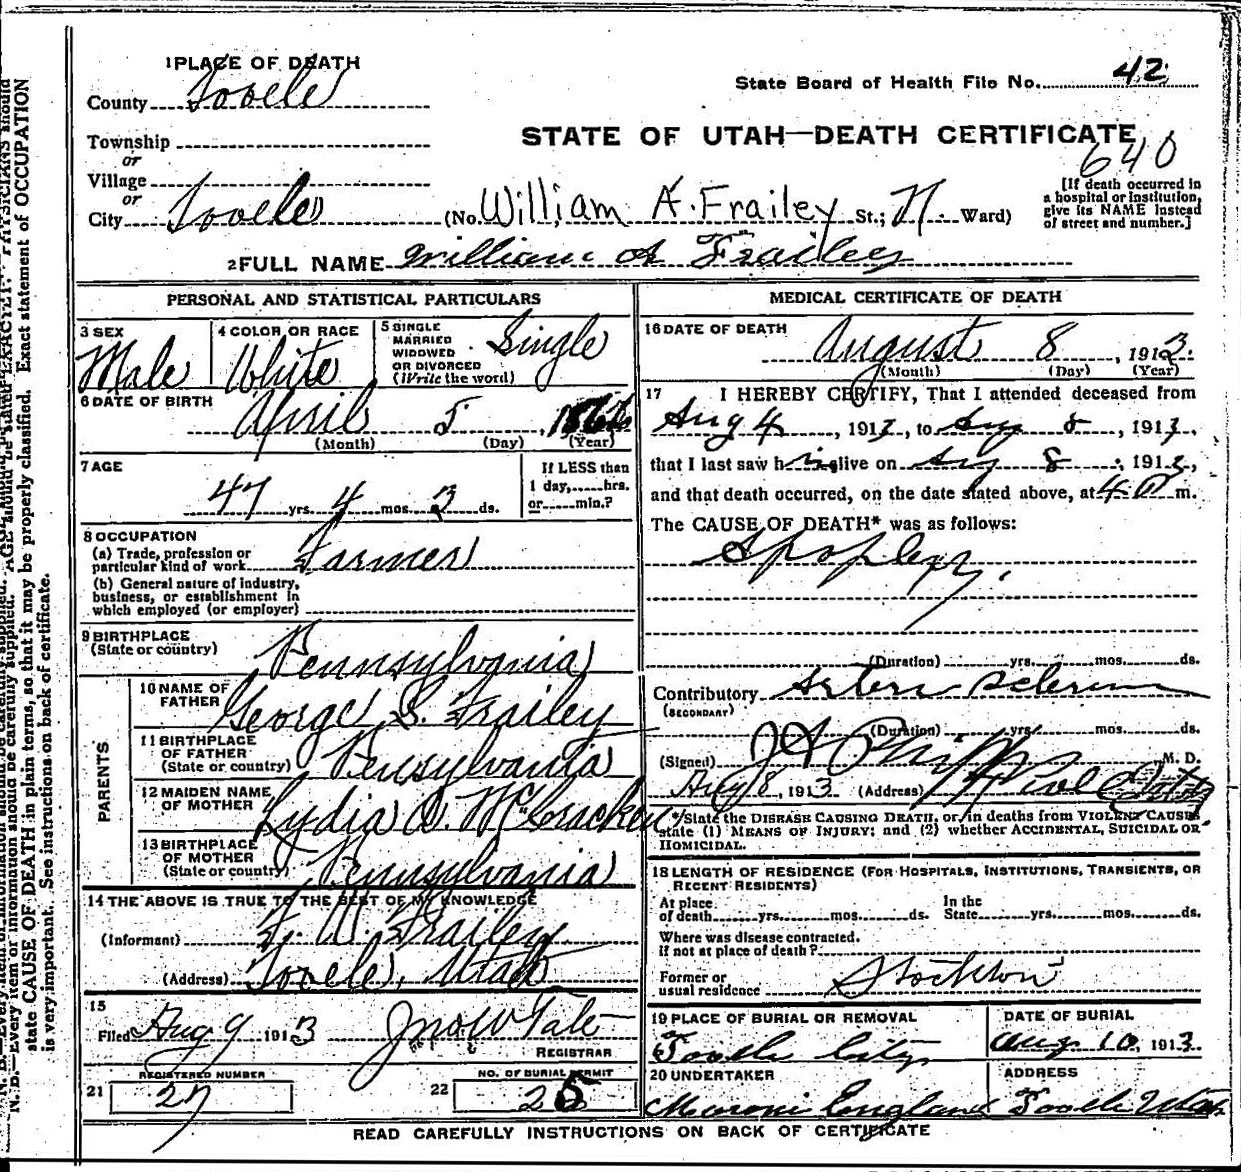 1 PLACE OF DEATH
County Tooele
State Board of Health File No. 42
Township
or
Village
or
City Tooele (No. William A. Frailey St.; N. Ward)
STATE OF UTAH—DEATH CERTIFICATE
640
[If death occurred in
a hospital or institution,
give its NAME instead
of street and number.]
2 FULL NAME William A Frailey
PERSONAL AND STATISTICAL PARTICULARS
3 SEX
Male
4 COLOR OR RACE
White
5 SINGLE
MARRIED
WIDOWED
OR DIVORCED
(Write the word)
Single
6 DATE OF BIRTH
April 5
(Month) (Day) (Year)
7 AGE
47 yrs. 4 mos. 3 ds.
If LESS than
1 day,......hrs.
or......min.?
8 OCCUPATION
(a) Trade, profession or
particular kind of work Farmer
(b) General nature of industry,
business, or establishment in
which employed (or employer)
9 BIRTHPLACE
(State or country)
Pennsylvania
PARENTS
10 NAME OF
FATHER
George S. Frailey
11 BIRTHPLACE
OF FATHER
(State or country)
Pensylvania
12 MAIDEN NAME
OF MOTHER
Lydia D. McCracken
13 BIRTHPLACE
OF MOTHER
(State or country)
Pennsylvania
14 THE ABOVE IS TRUE TO THE BEST OF MY KNOWLEDGE
(Informant) F. W. Frailey
(Address) Tooele, Utah
15
Filed Aug 9 1913 Jno W Tate
REGISTRAR
REGISTERED NUMBER
21 27
NO. OF BURIAL PERMIT
22 25
MEDICAL CERTIFICATE OF DEATH
16 DATE OF DEATH
August 8, 1913.
(Month) (Day) (Year)
17 I HEREBY CERTIFY, That I attended deceased from
Aug 4, 1913, to Aug 8, 1913,
that I last saw him alive on Aug 8, 1913,
and that death occurred, on the date stated above, at m.
The CAUSE OF DEATH* was as follows:
Apoplexy.
(Duration) yrs. mos. ds.
Contributory Arterio sclerosis
(SECONDARY)
(Duration) yrs. mos. ds.
(Signed) J A Phipps M. D.
Aug 8, 1913 (Address) Tooele Utah
*State the DISEASE CAUSING DEATH, or, in deaths from VIOLENT CAUSES,
state (1) MEANS OF INJURY; and (2) whether ACCIDENTAL, SUICIDAL OR
HOMICIDAL.
18 LENGTH OF RESIDENCE (FOR HOSPITALS, INSTITUTIONS, TRANSIENTS, OR
RECENT RESIDENTS)
At place
of death yrs. mos. ds.
In the
State yrs. mos. ds.
Where was disease contracted.
if not at place of death?
Former or
usual residence Stockton
19 PLACE OF BURIAL OR REMOVAL
Tooele City
DATE OF BURIAL
Aug. 10, 1913.
20 UNDERTAKER
Maroni England
ADDRESS
Tooele Utah
READ CAREFULLY INSTRUCTIONS ON BACK OF CERTIFICATE
state CAUSE OF DEATH in plain terms, so that it may be properly classified. Exact statement of OCCUPATION
is very important. See instructions on back of certificate.